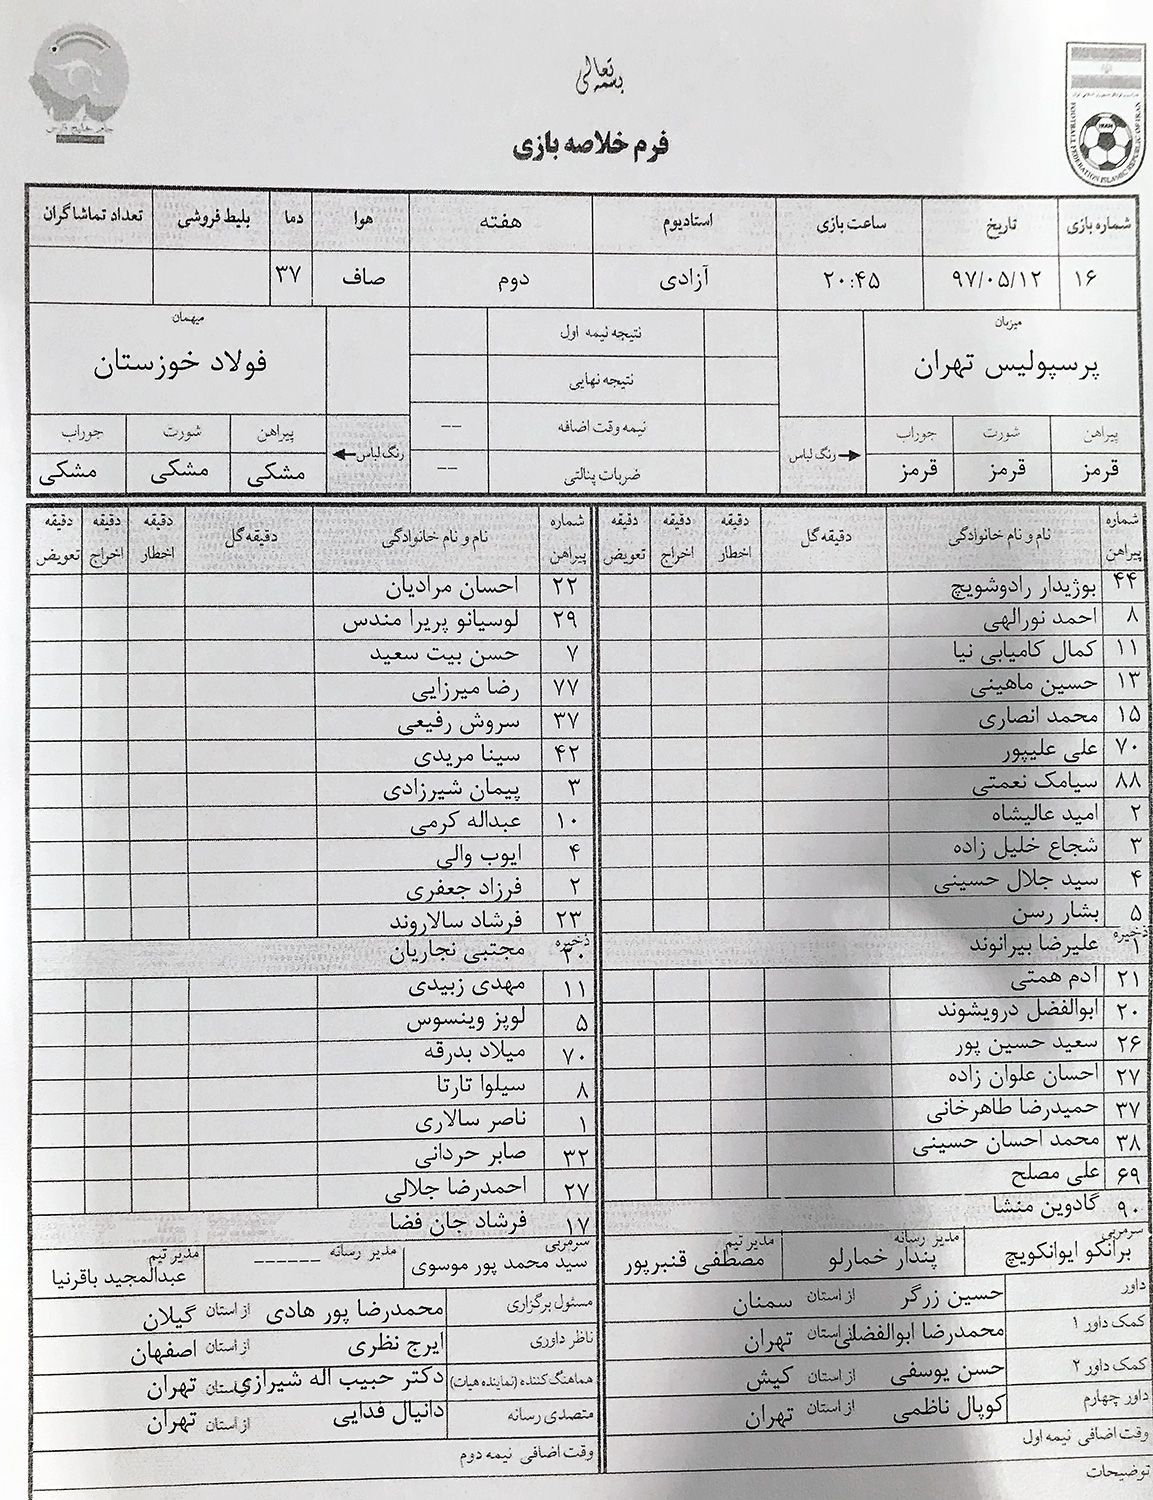 بسمه تعالی
فرم خلاصه بازی
جام خلیج فارس
FOOTBALL FEDERATION ISLAMIC REPUBLIC OF IRAN
شماره بازی تاریخ ساعت بازی استادیوم هفته هوا دما بلیط فروشی تعداد تماشاگران
۱۶ ۹۷/۰۵/۱۲ ۲۰:۴۵ آزادی دوم صاف ۳۷
میزبان نتیجه نیمه اول میهمان
پرسپولیس تهران نتیجه نهایی فولاد خوزستان
پیراهن شورت جوراب رنگ لباس نیمه وقت اضافه -- رنگ لباس پیراهن شورت جوراب
قرمز قرمز قرمز ضربات پنالتی -- مشکی مشکی مشکی
شماره پیراهن نام و نام خانوادگی دقیقه گل دقیقه اخطار دقیقه اخراج دقیقه تعویض شماره پیراهن نام و نام خانوادگی دقیقه گل دقیقه اخطار دقیقه اخراج دقیقه تعویض
۴۴ بوژیدار رادوشویچ ۲۲ احسان مرادیان
۸ احمد نورالهی ۲۹ لوسیانو پریرا مندس
۱۱ کمال کامیابی نیا ۷ حسن بیت سعید
۱۳ حسین ماهینی ۷۷ رضا میرزایی
۱۵ محمد انصاری ۳۷ سروش رفیعی
۷۰ علی علیپور ۴۲ سینا مریدی
۸۸ سیامک نعمتی ۳ پیمان شیرزادی
۲ امید عالیشاه ۱۰ عبداله کرمی
۳ شجاع خلیل زاده ۴ ایوب والی
۴ سید جلال حسینی ۲ فرزاد جعفری
۵ بشار رسن ۲۳ فرشاد سالاروند
ذخیره ۱ علیرضا بیرانوند ذخیره ۳۰ مجتبی نجاریان
۲۱ آدم همتی ۱۱ مهدی زبیدی
۲۰ ابوالفضل درویشوند ۵ لوپز وینسوس
۲۶ سعید حسین پور ۷۰ میلاد بدرقه
۲۷ احسان علوان زاده ۸ سیلوا تارتا
۳۷ حمیدرضا طاهرخانی ۱ ناصر سالاری
۳۸ محمد احسان حسینی ۳۲ صابر حردانی
۶۹ علی مصلح ۲۷ احمدرضا جلالی
۹۰ گادوین منشا ۱۷ فرشاد جان فضا
سرمربی برانکو ایوانکویچ مدیر رسانه پندار خمارلو مدیر تیم مصطفی قنبرپور سرمربی سید محمد پور موسوی مدیر رسانه ------ مدیر تیم عبدالمجید باقرنیا
داور حسین زرگر از استان سمنان مسئول برگزاری محمدرضا پور هادی از استان گیلان
کمک داور ۱ محمدرضا ابوالفضلی از استان تهران ناظر داوری ایرج نظری از استان اصفهان
کمک داور ۲ حسن یوسفی از استان کیش هماهنگ کننده (نماینده هیات) دکتر حبیب اله شیرازی از استان تهران
داور چهارم کوپال ناظمی از استان تهران متصدی رسانه دانیال فدایی از استان تهران
وقت اضافی نیمه اول وقت اضافی نیمه دوم
توضیحات